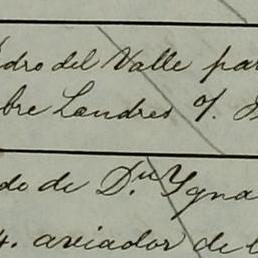 dro del Valle par
bre Landres o/.
do de D.n Ygna
4. aviador de l